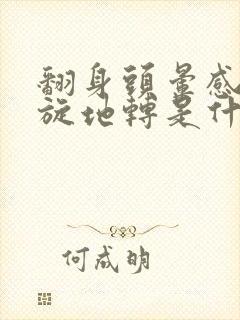 翻身頭暈感
旋地轉是什
何成明